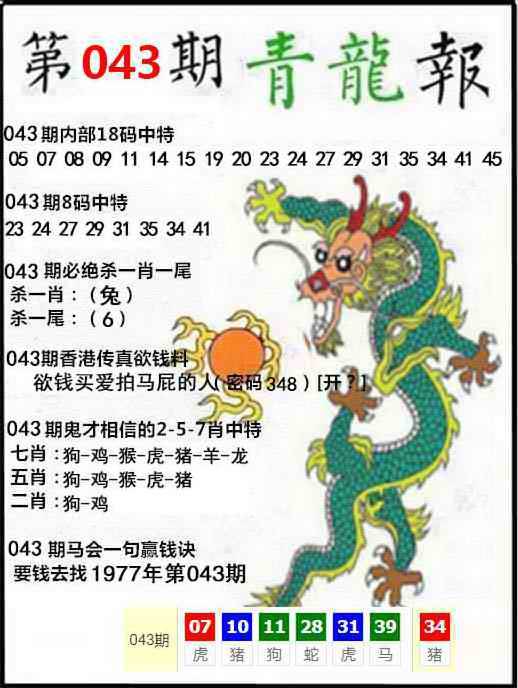 第043期 青龍報
043期内部18码中特
05 07 08 09 11 14 15 19 20 23 24 27 29 31 35 34 41 45
043期8码中特
23 24 27 29 31 35 34 41
043 期必绝杀一肖一尾
杀一肖：（兔）
杀一尾：（6）
043期香港传真欲钱料
欲钱买爱拍马屁的人（密码348）[开？]
043期鬼才相信的2-5-7肖中特
七肖：狗-鸡-猴-虎-猪-羊-龙
五肖：狗-鸡-猴-虎-猪
二肖：狗-鸡
043 期马会一句赢钱诀
要钱去找1977年第043期
043期 07 10 11 28 31 39 34
虎 猪 狗 蛇 虎 马 猪